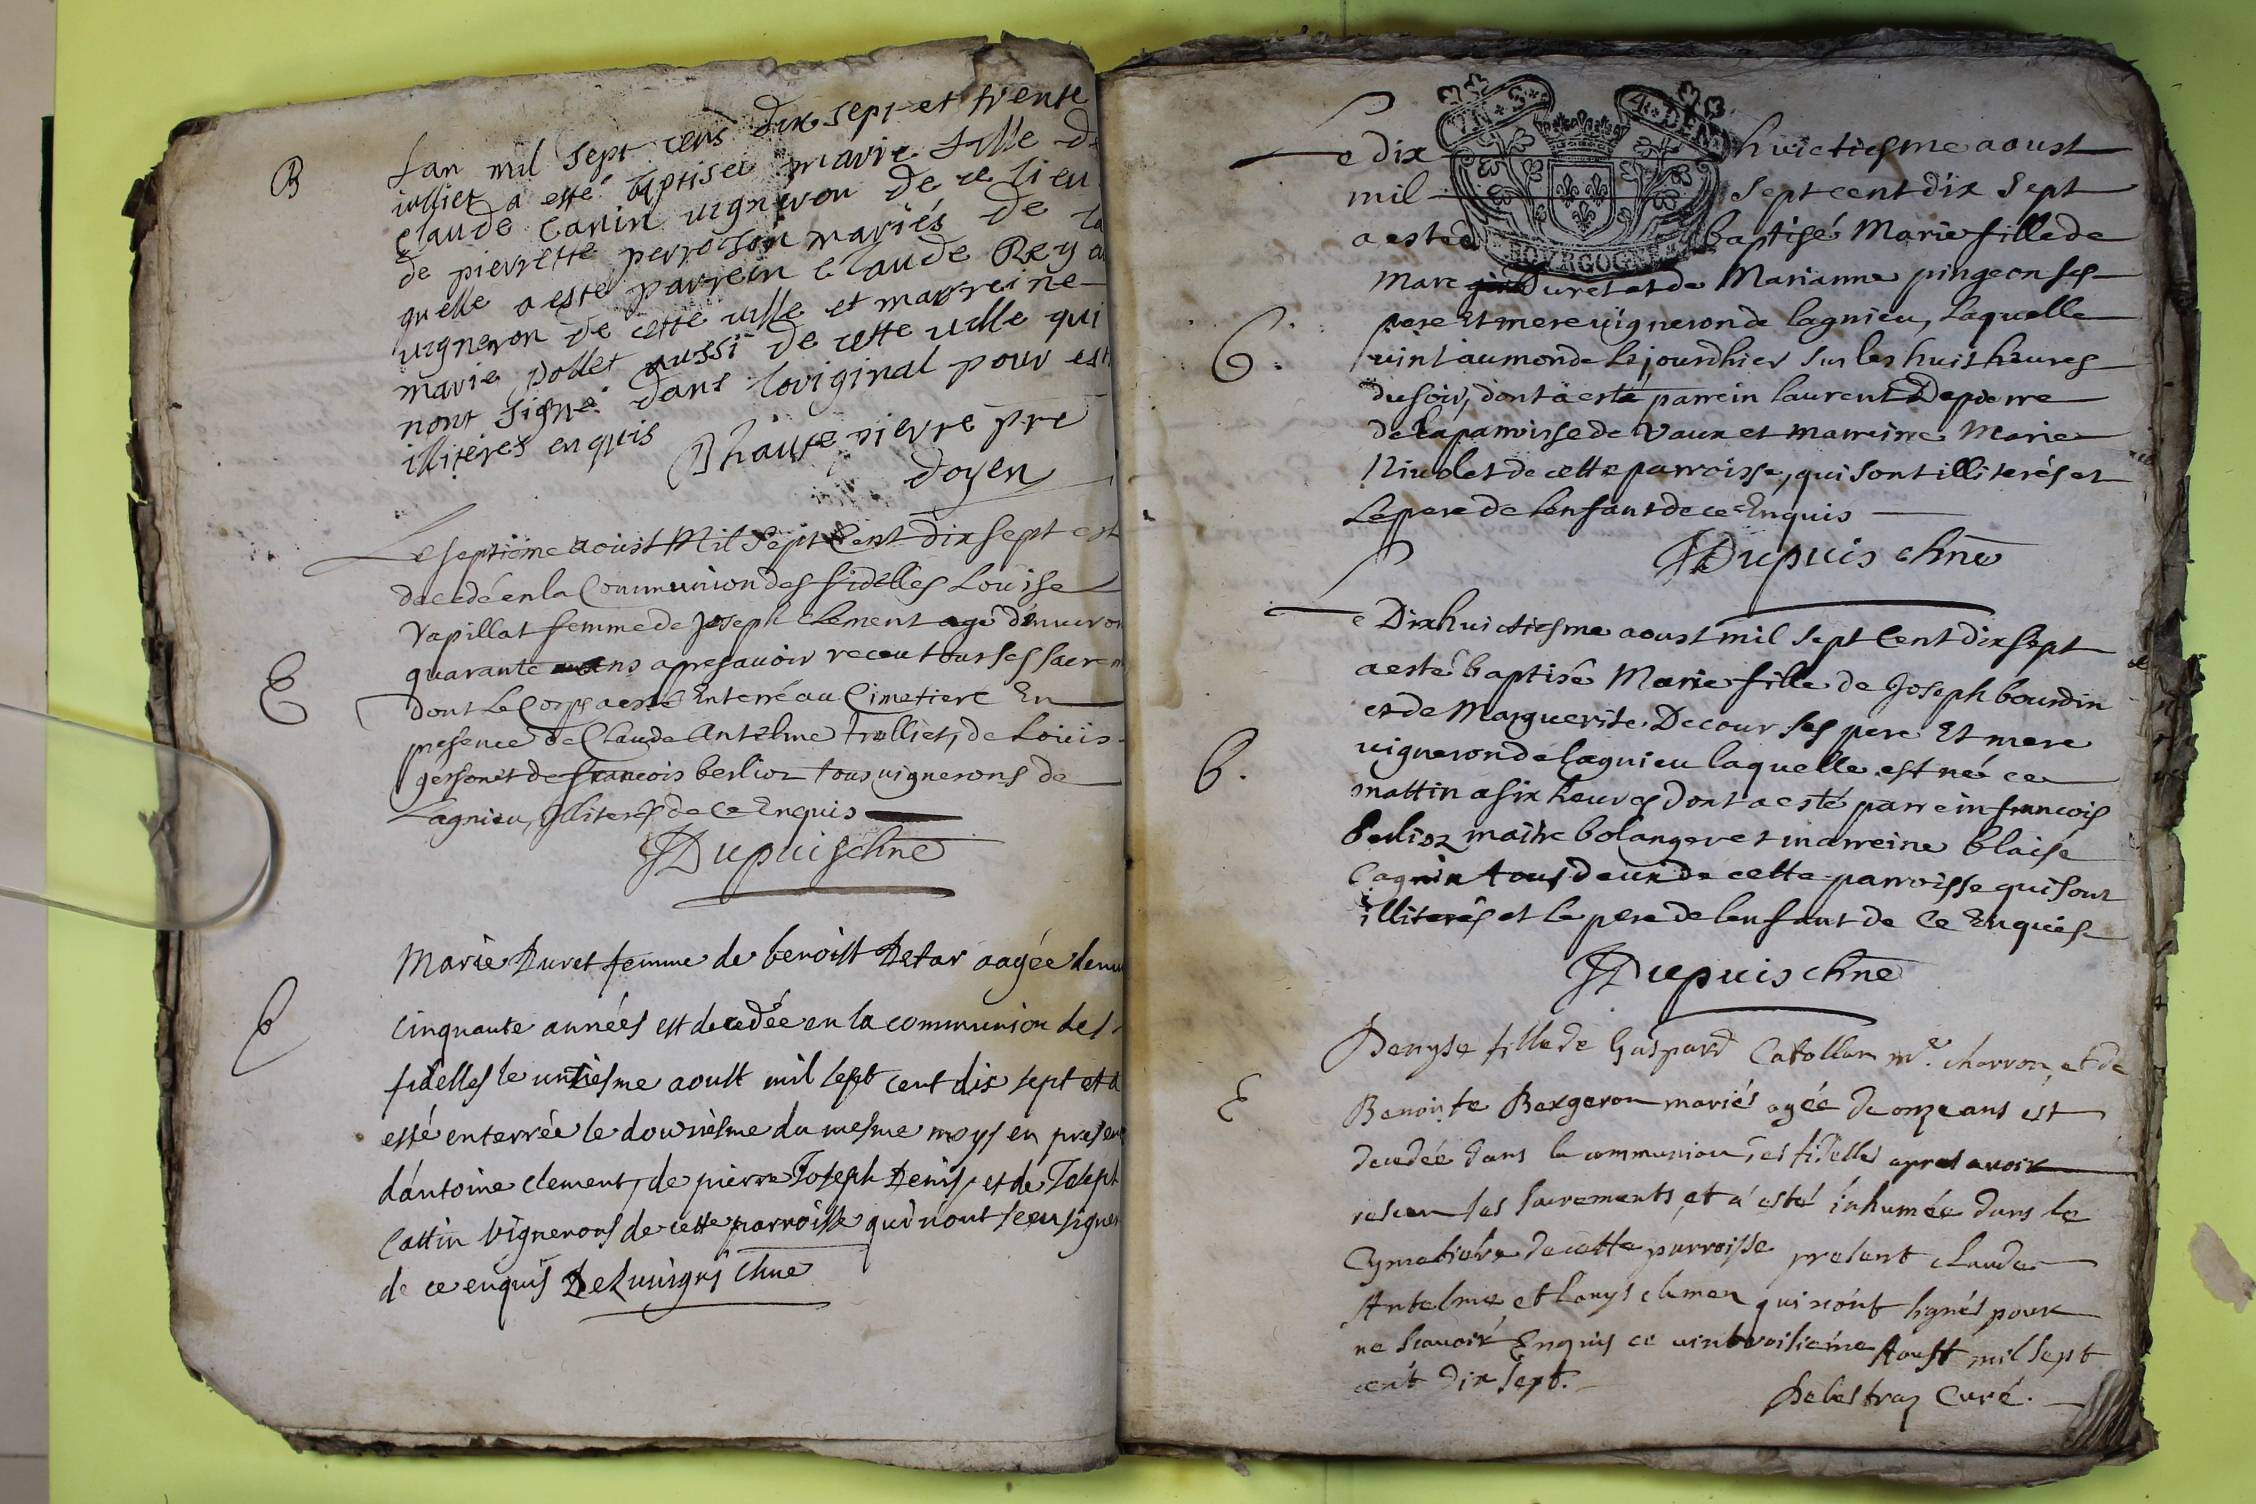 B
Lan mil sept cens dix sept et trente
iulliet a esté baptisee marie fille de
Claude Canin vigneron de ce lieu
de pierrette perrochon mariés de la
quelle a esté parrein Claude Rey
vigneron de cette ville et marreine
marie pollet aussi de cette ville qui
nont signé dans loriginal pour est
illiteres enquis
pierre pre
doyen
Le septieme aoust Mil Sept Cent Dix sept est
decedé en la Communion des fidelles Louise
Vapillat femme de Joseph Clement agé denviron
quarante ans apres avoir receu tous ses sacrem
E
dont Le Corps a esté Enterré au Cimetiere En
presence de Claude Antelme trolliet, de Louis
gersonet de francois berlioz tous vignerons de
Lagnieu, Illiterés de Ce Enquis
JDupuis chne
Marie Duret femme de benoist Detar aagée denv
E
cinquante années est decedée en la communion des
fidelles le untiesme aoust mil sept cent dix sept et a
esté enterrée le douziesme du mesme moys en presen
dantoine clement, de pierre Joseph Denis, et de Joseph
Cattin vignerons de cette parroisse qui nont sceu signer
de ce enquis Delusigny chne
78 S 4 DEN
BOURGOGNE
Le dix huictiesme aoust
mil Sept cent dix Sept
a esté baptisé Marie fille de
Marc Duret et de Marianne pingeon ses
pere Et mere vigneron de lagnieu, Laquelle
B
vint au monde Le jourdhier Sur les huit heures
du soir, dont a esté parrein laurent Depierre
de la parroisse de Vaux et marreine Marie
Nivolet de cette parroisse, qui sont illiterés et
Le pere de Lenfant de ce Enquis
JDupuis chne
Le Dixhuictiesme aoust mil Sept Cent dix sept
a esté baptisé Marie fille de Joseph bourdin
et de Marguerite Decour ses pere Et mere
B.
vigneron de lagnieu laquelle est née ce
mattin a six heures dont a esté parrein francois
berlioz maitre bolanger et marreine blaise
Cagnin tous deux de cette parroisse qui sont
illiterés et Le pere de lenfant de Ce Enquis
JDupuis chne
Denyse fille de Gaspard Catollan mre charron, et de
E
Benoite Bergeron mariés agée de onze ans est
decedée dans la communion des fidelles apres avoir
reseu les sacrements, et a esté inhumée dans le
Cymetiere de cette parroisse present claude
Antelme et Louys clemen qui n'ont signés pour
ne scavoir Enquis ce vintroisieme Aoust mil sept
cent dix sept.
Delestraz Curé.